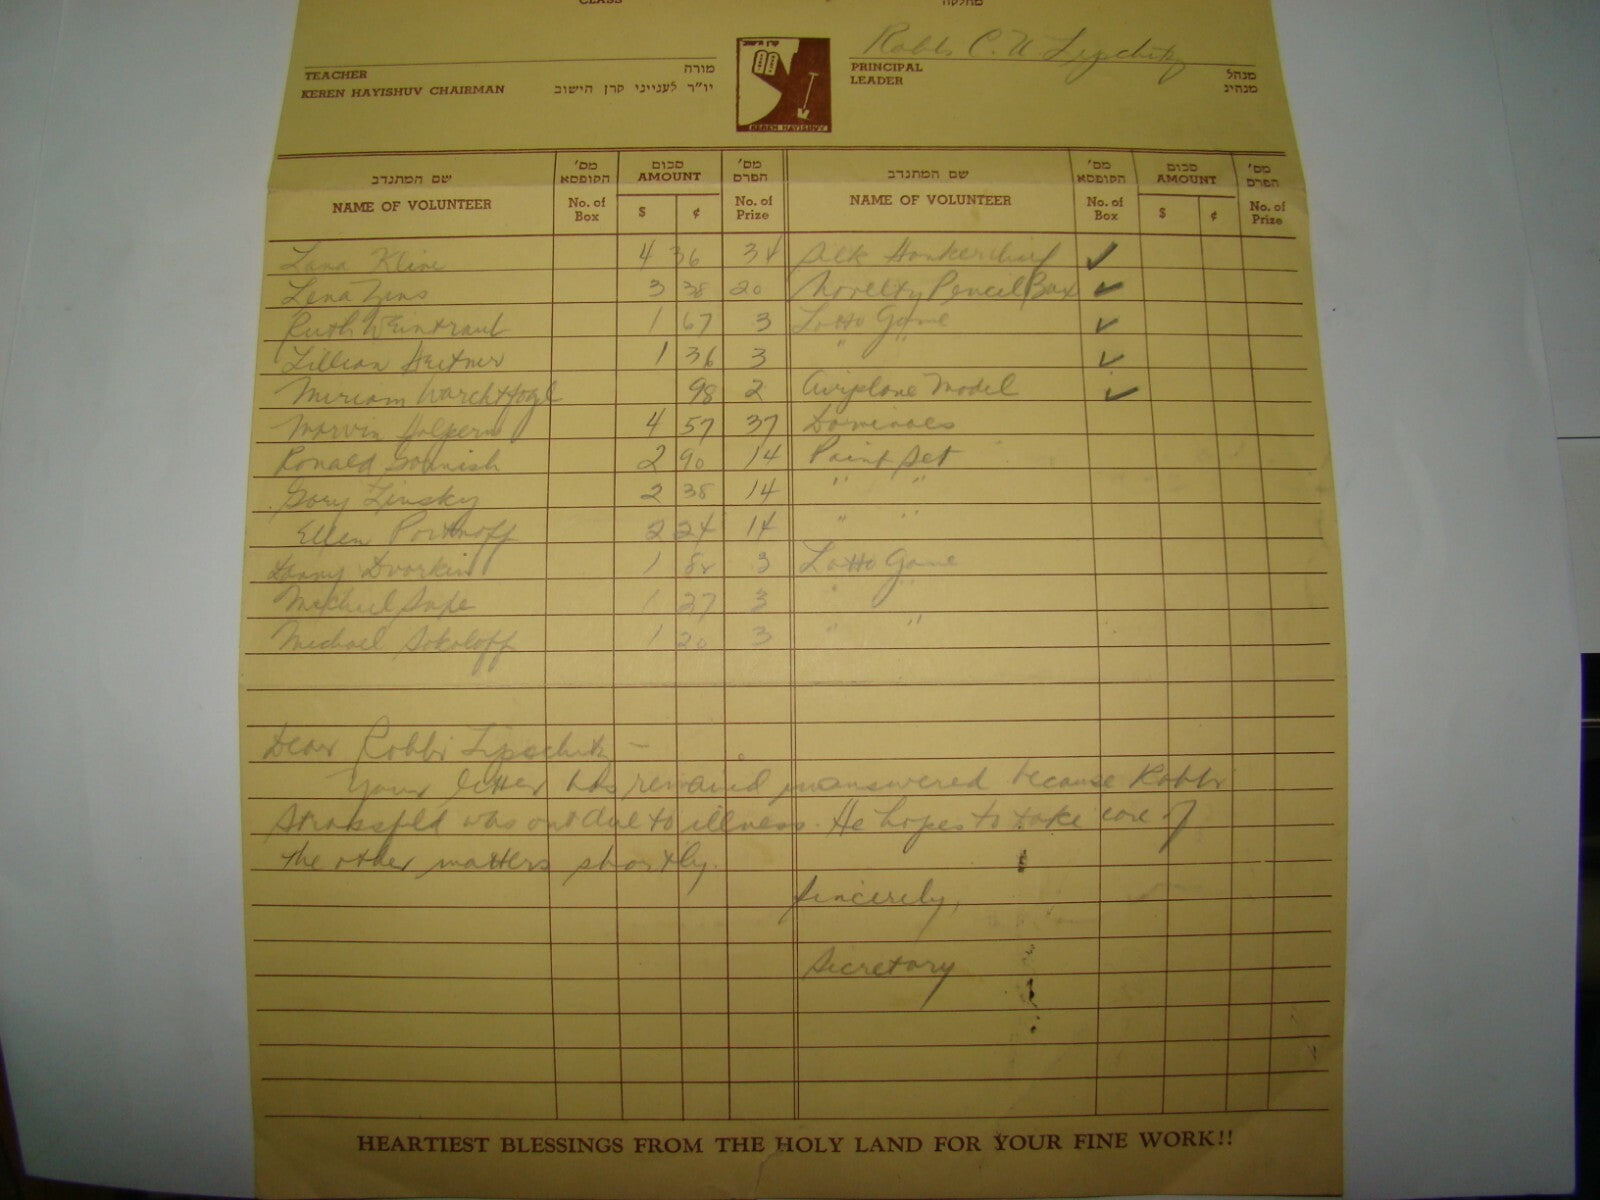 CLASS מחלקה
Rabbi C. U. Lipschitz
TEACHER מורה PRINCIPAL מנהל
KEREN HAYISHUV CHAIRMAN יו"ר לענייני קרן הישוב LEADER מנהיג
קרן הישוב
KEREN HAYISHUV
שם המתנדב מס' הקופסא סכום מס' הפרס שם המתנדב מס' הקופסא סכום מס' הפרס
NAME OF VOLUNTEER No. of Box AMOUNT $ ¢ No. of Prize NAME OF VOLUNTEER No. of Box AMOUNT $ ¢ No. of Prize
Lana Kline 4 36 34 Silk Hankerchief ✓
Lena Zins 3 38 20 Novelty Pencil Box ✓
Ruth Weintraub 1 67 3 Lotto Game ✓
Lillian 1 36 3 " " ✓
Miriam 98 2 Airplane Model ✓
Marvin Halpern 4 57 37 Dominoes
Ronald 2 90 14 Paint Set
Gary Linsky 2 38 14 " "
Ellen Portnoff 2 24 14 " "
Danny Dvorkin 1 3 Lotto Game
Michael 1 27 3 " "
Michael Sokoloff 1 20 3 " "
Dear Rabbi Lipschitz –
Your letter has remained unanswered because Rabbi
was out due to illness. He hopes to take care of
the other matters shortly.
Sincerely,
Secretary
HEARTIEST BLESSINGS FROM THE HOLY LAND FOR YOUR FINE WORK!!